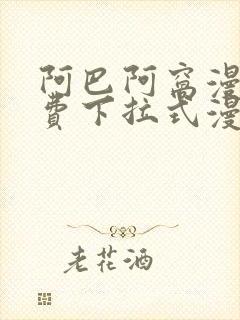 阿巴阿窝漫
费下拉式漫
老花酒